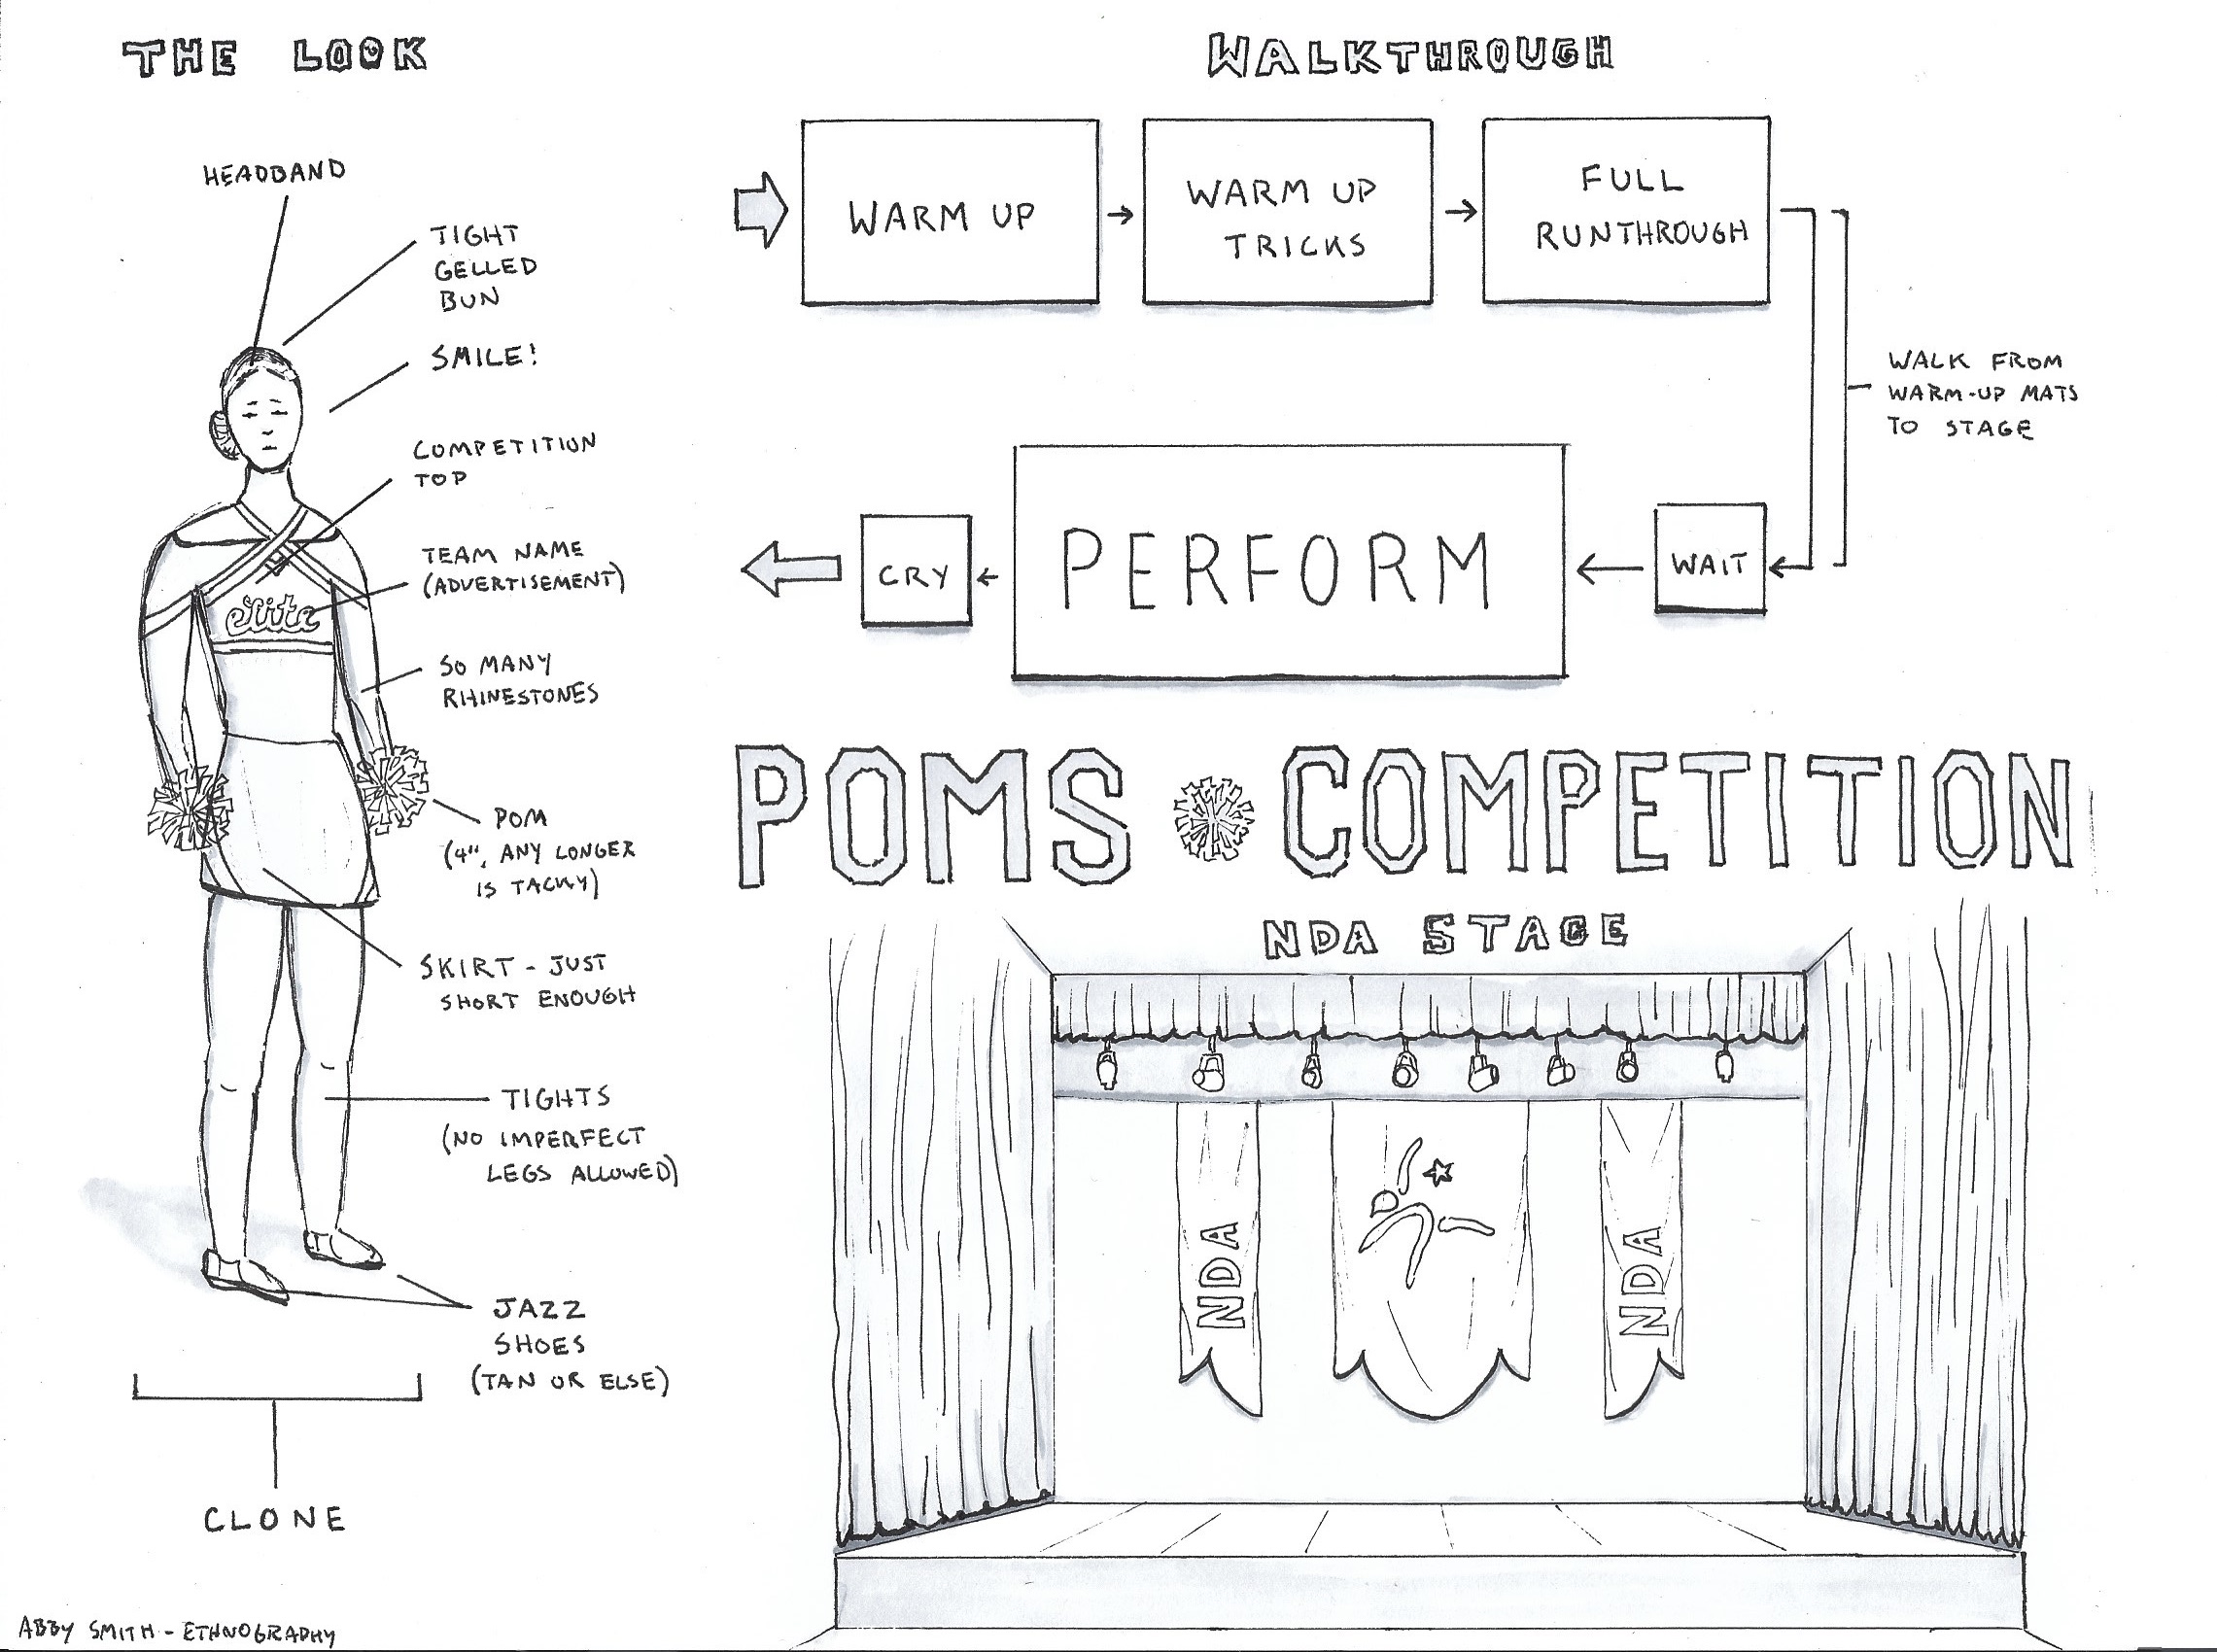 THE LOOK
HEADBAND
TIGHT
GELLED
BUN
SMILE!
COMPETITION
TOP
TEAM NAME
(ADVERTISEMENT)
elite
SO MANY
RHINESTONES
POM
(4", ANY LONGER
IS TACKY)
SKIRT - JUST
SHORT ENOUGH
TIGHTS
(NO IMPERFECT
LEGS ALLOWED)
JAZZ
SHOES
(TAN OR ELSE)
CLONE
ABBY SMITH - ETHNOGRAPHY
WALKTHROUGH
WARM UP
WARM UP
TRICKS
FULL
RUNTHROUGH
WALK FROM
WARM-UP MATS
TO STAGE
WAIT
PERFORM
CRY
POMS COMPETITION
NDA STAGE
NDA
NDA